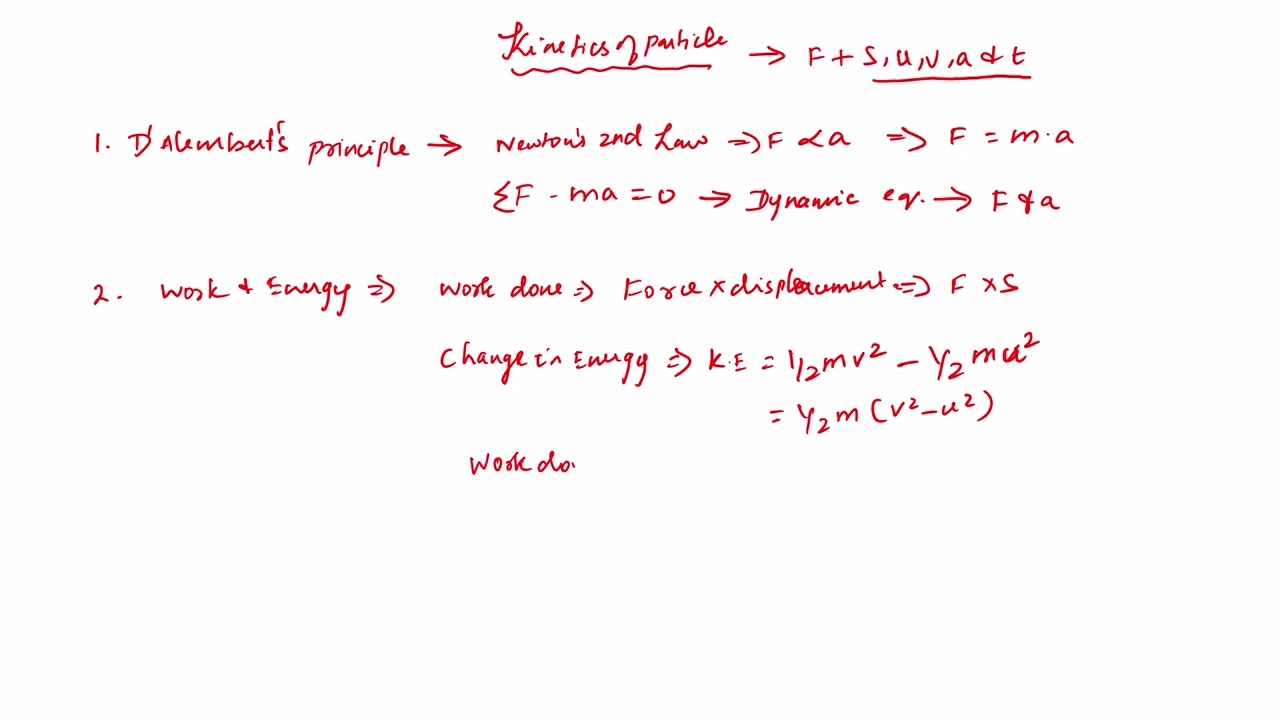 Kinetics of particle → F + S, u, v, a & t
1. D'Alembert's principle → Newton's 2nd Law ⇒ F ∝ a ⇒ F = m·a
ΣF - ma = 0 → Dynamic eq. → F & a
2. Work & Energy ⇒ Work done ⇒ Force × displacement ⇒ F × S
Change in Energy ⇒ K.E = 1/2 mv² - 1/2 mu²
= 1/2 m (v² - u²)
Work do